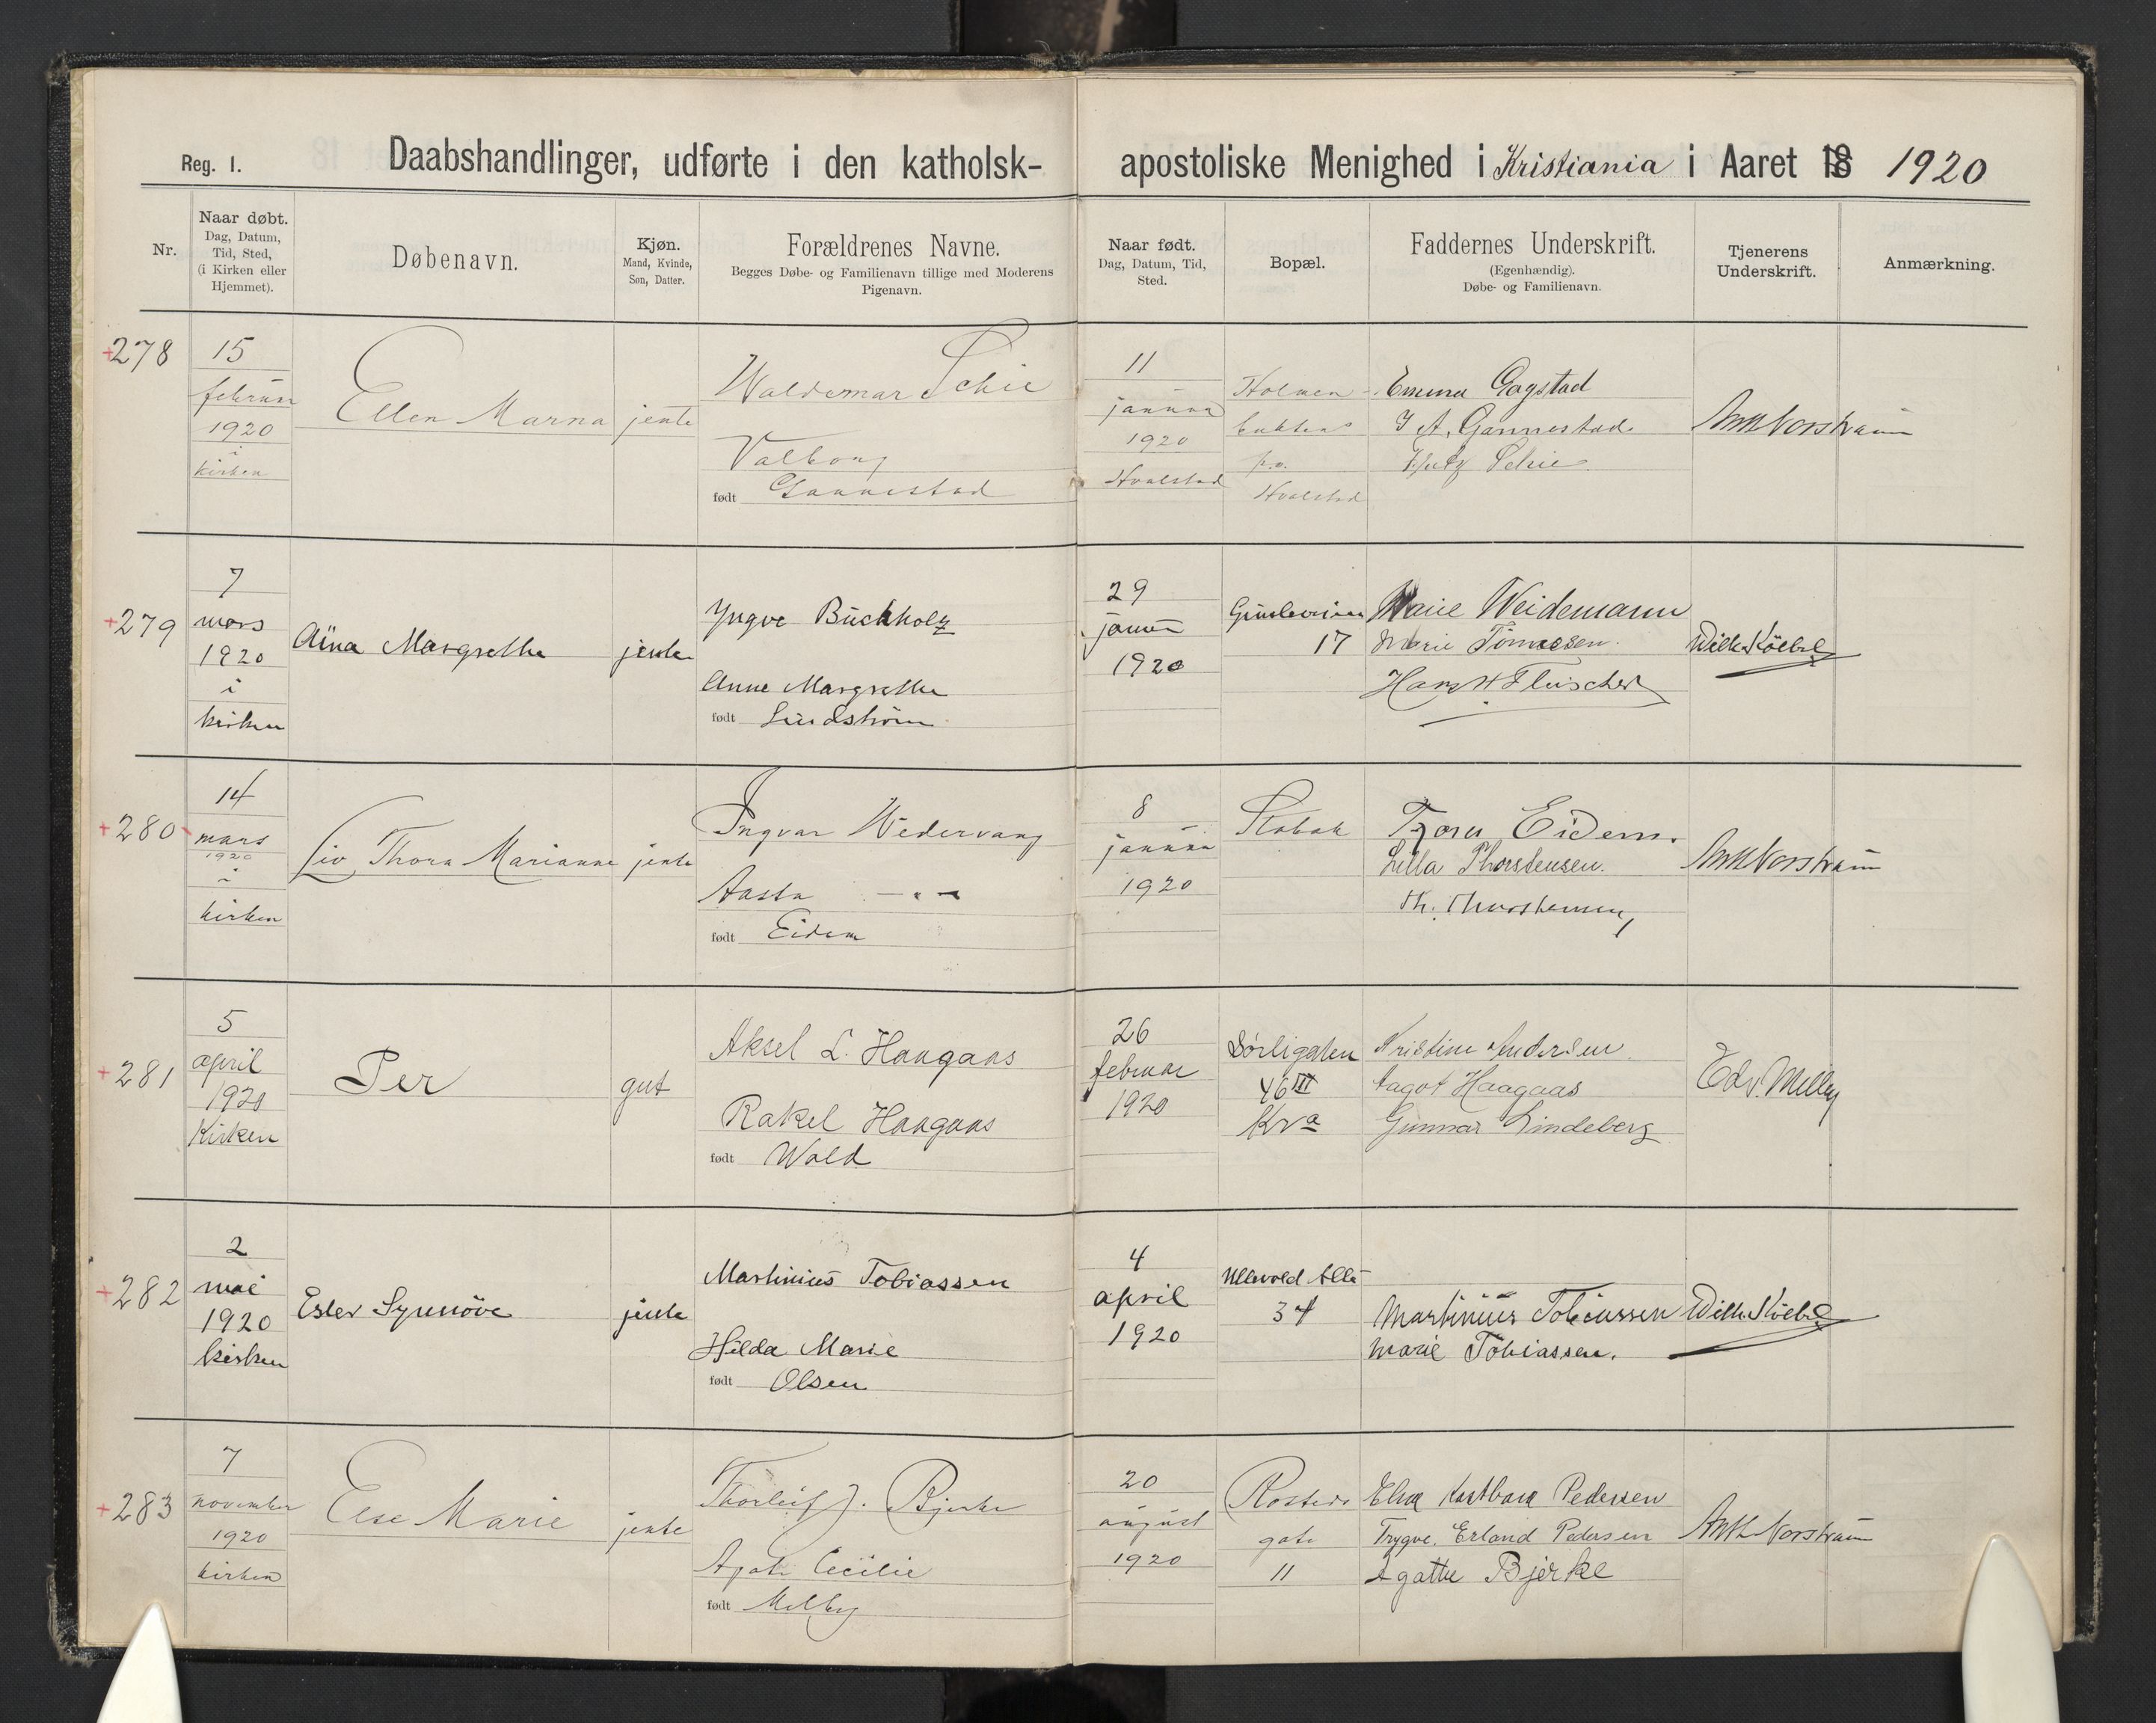 Reg. 1.
Daabshandlinger, udførte i den katholsk-apostoliske Menighed i Kristiania i Aaret 18 1920
Nr.
Naar døbt.
Dag, Datum,
Tid, Sted,
(i Kirken eller
Hjemmet).
Døbenavn.
Kjøn.
Mand, Kvinde,
Søn, Datter.
Forældrenes Navne.
Begges Døbe- og Familienavn tillige med Moderens
Pigenavn.
Naar født.
Dag, Datum, Tid,
Sted.
Bopæl.
Faddernes Underskrift.
(Egenhændig).
Døbe- og Familienavn.
Tjenerens
Underskrift.
Anmærkning.
+278
15
februar
1920
i
kirken
Ellen Marna
jente
Waldemar Schie
Valborg
født Gannestad
11
januar
1920
Hvalstad
Holmen
p.o.
Hvalstad
Emma Gagstad
J A. Gannestad
Schie
+279
7
mars
1920
i
kirken
Aina Margrethe
jente
Yngve Buchholz
Anne Margrethe
født Lindstrøm
29
januar
1920
17
Marie Weidemann
Marie Tømassen.
Hans H Fleischer
Wilh. Köebel
+280
14
mars
1920
i
kirken
Liv Thora Marianne
jente
Ingvar Wedervang
Aasta — " —
født Eidem
8
januar
1920
Stabæk
Thora Eidem.
Lilla Thorstensen.
Th. Thorstensen
+281
5
april
1920
Kirken
Per
gut
Aksel L. Haagaas
Rakel Haagaas
født Wold
26
februar
1920
Sørligaten
46 III
Kra
Kristine Andersen
Aagot Haagaas
Gunnar Lindeberg
Edv. Melby
+282
2
mai
1920
kirken
Ester Synnöve
jente
Martinius Tobiassen
Hilda Marie
født Olsen
4
april
1920
Ullevold Allé
34
Martinius Tobiassen
Marie Tobiassen.
Wilh. Köebel
+283
7
november
1920
kirken
Else Marie
jente
Thorleif J. Bjerke
Agate Cecilie
født Melby
20
august
1920
Rosteds
gate
11
Elna Pedersen
Trygve. Erland Pedersen
Agathe Bjerke